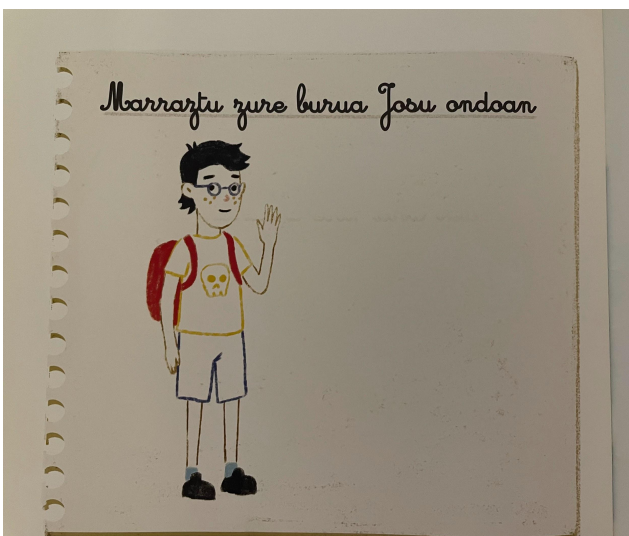 Marraztu zure burua Josu ondoan